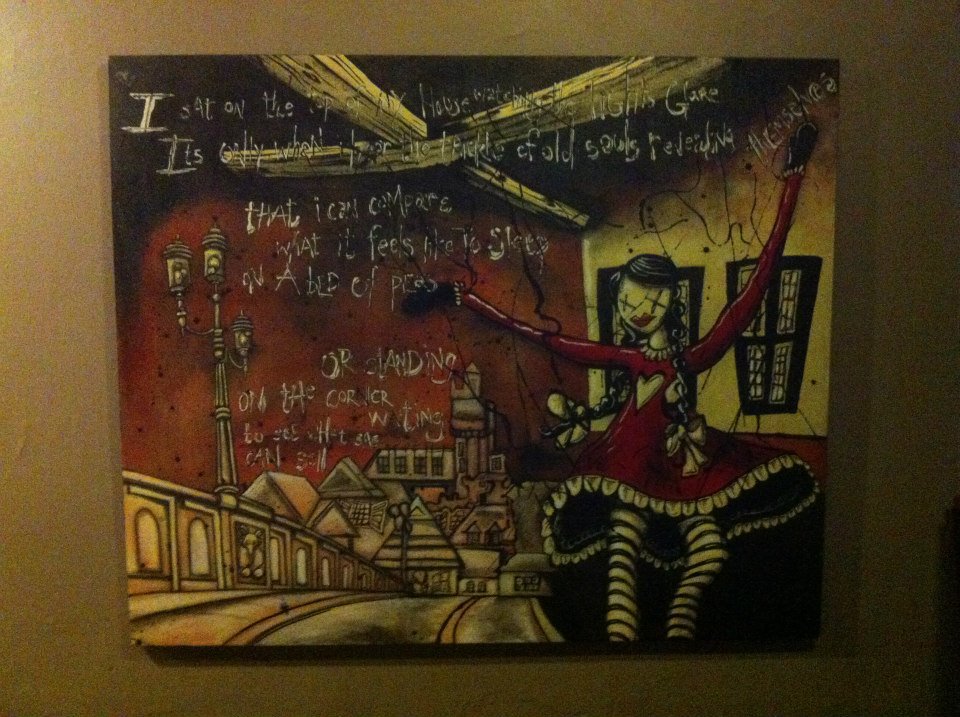 I sAt on the top of My House watching the lights Glare
Its only when i hear the of old souls revealing themselves
tHAt i can comPare
what it feels like To Sleep
on A bed of peas
OR sTANDiNG
ON tHE CORNER
wAiting
to see what she
CAN sell